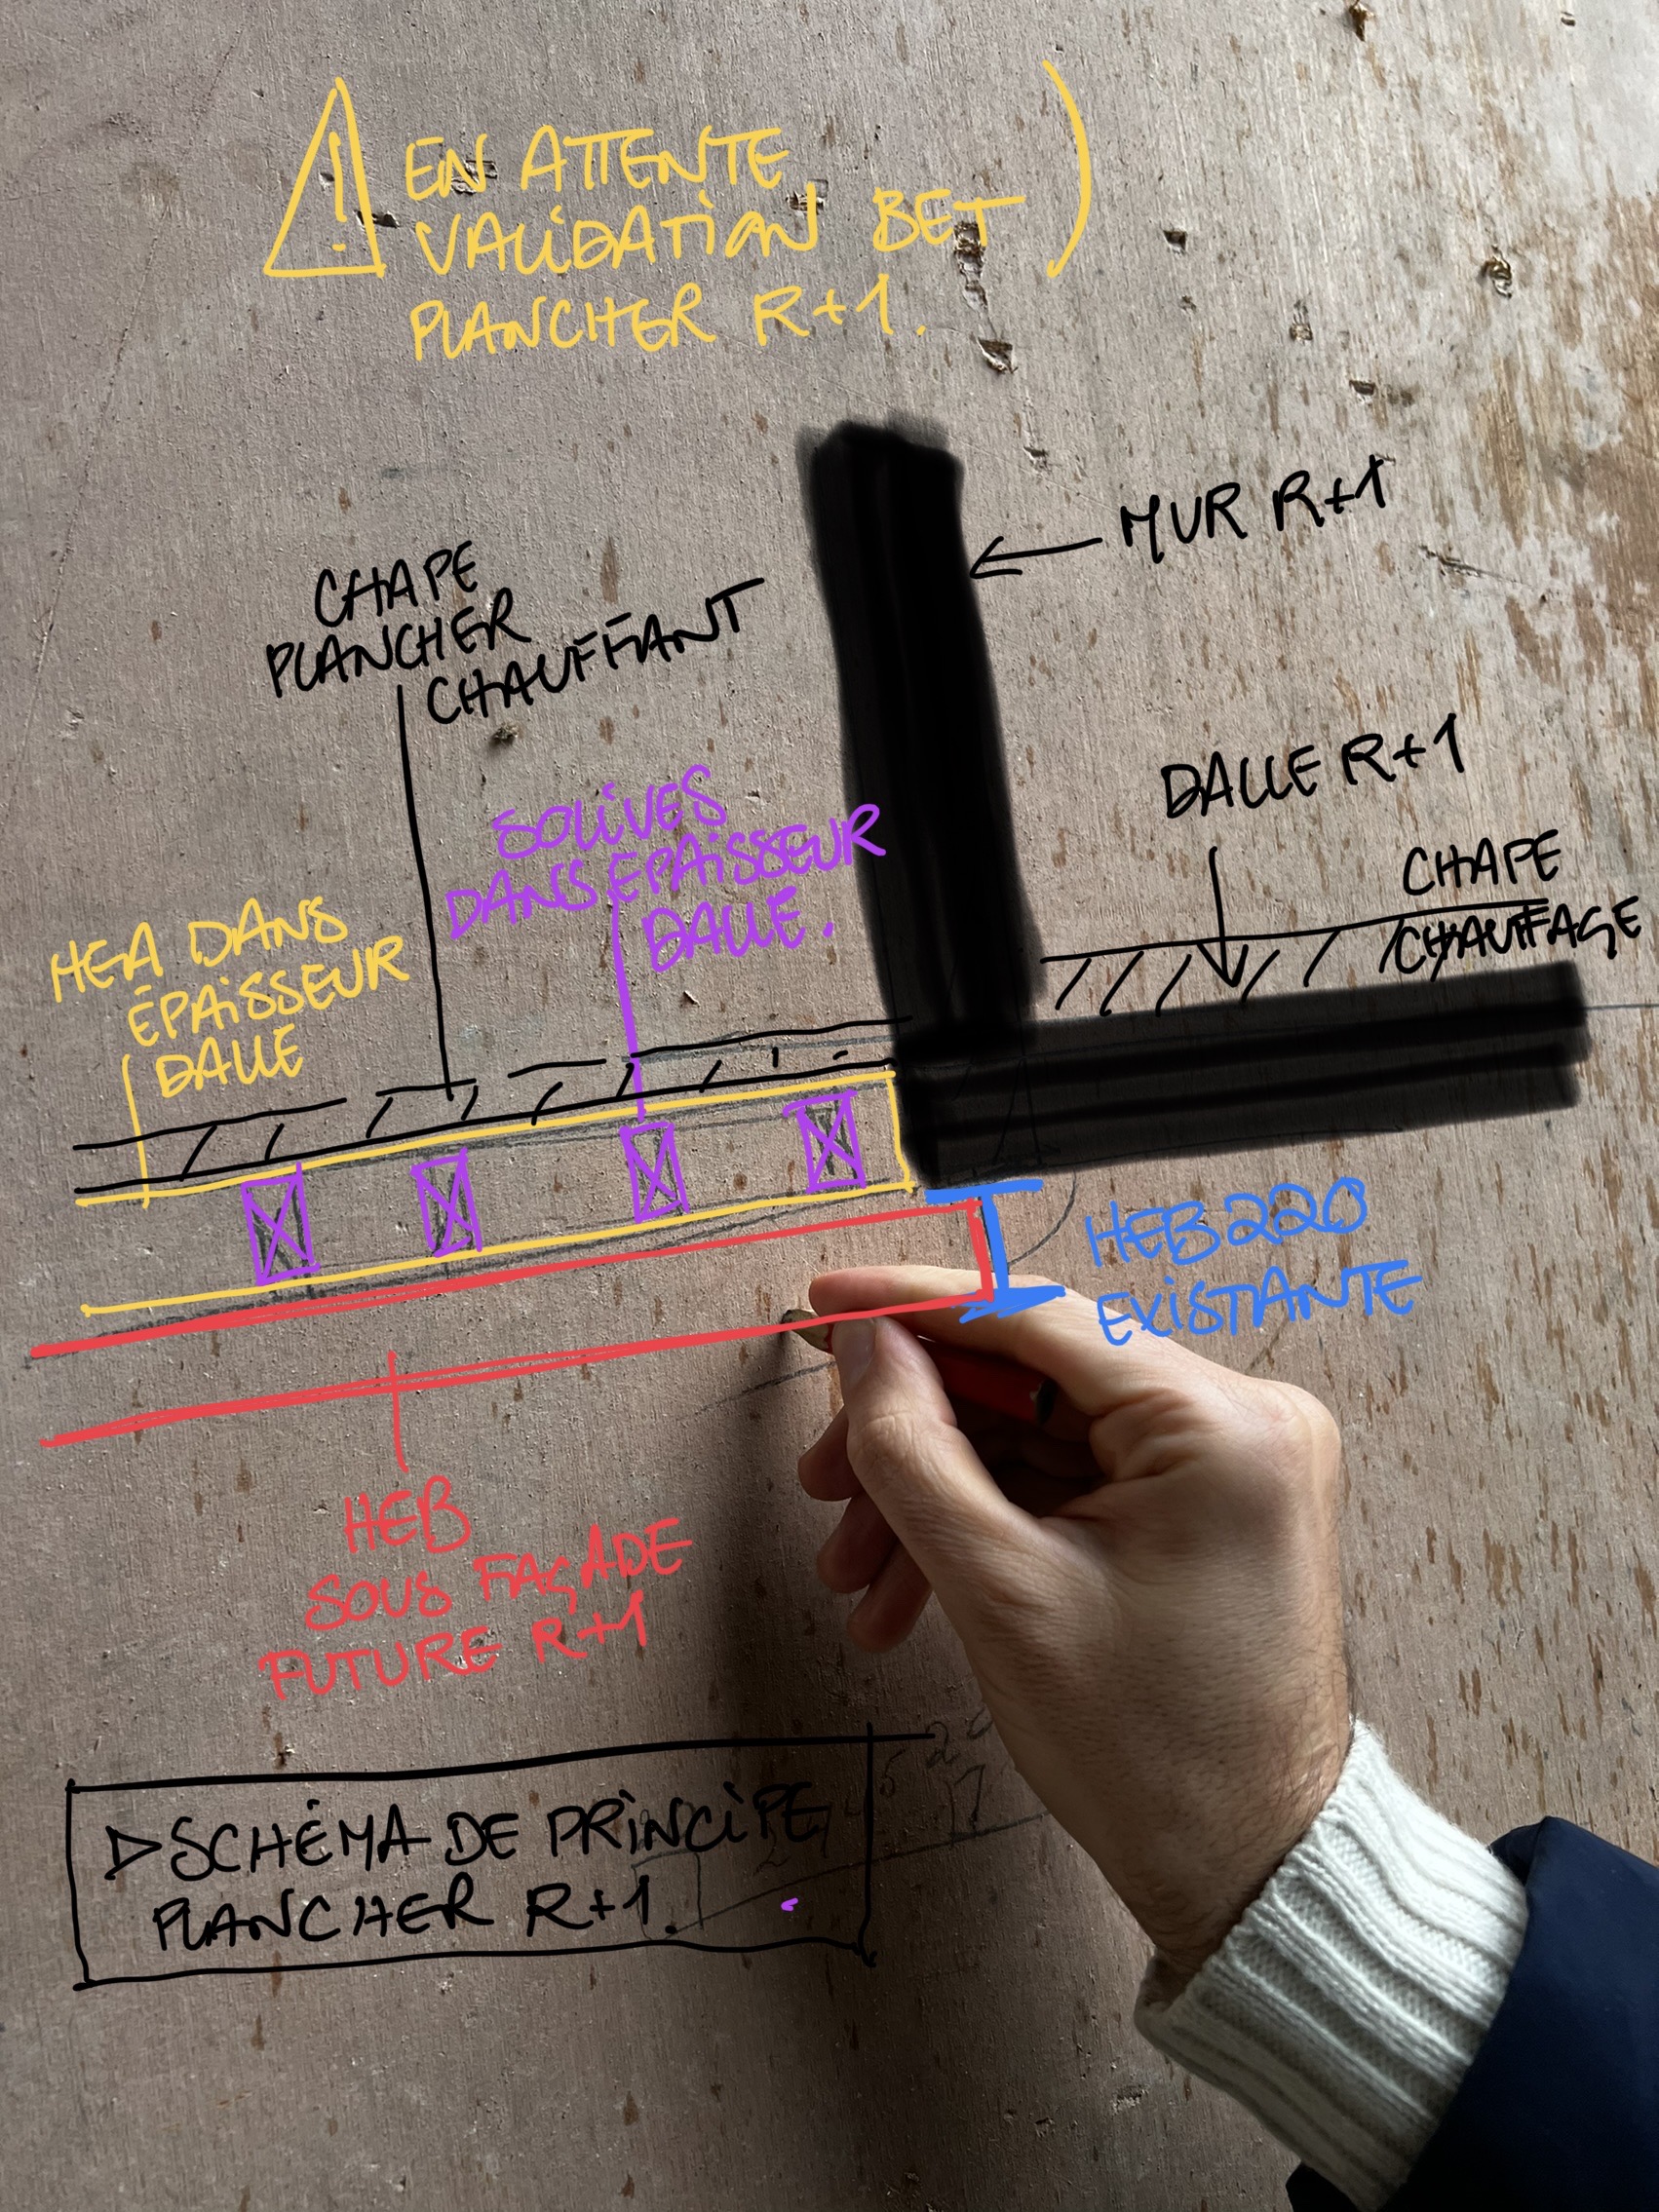 EN ATTENTE
VALIDATION BET
PLANCHER R+1.
MUR R+1
CHAPE
PLANCHER
CHAUFFANT
DALLE R+1
SOLIVES
DANS EPAISSEUR
DALLE.
CHAPE
CHAUFFAGE
HEA DANS
ÉPAISSEUR
DALLE
HEB 220
EXISTANTE
HEB
SOUS FAÇADE
FUTURE R+1
SCHÉMA DE PRINCIPE
PLANCHER R+1.